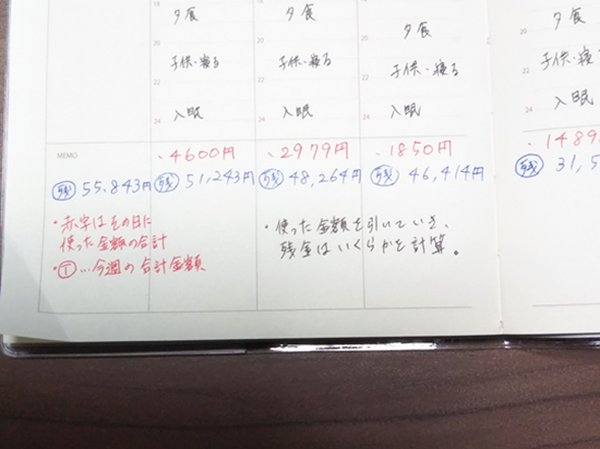 18
夕食
夕食
夕食
夕食
20
20
20
20
子供・寝る
子供・寝る
子供・寝る
子供・寝る
22
22
22
22
24
入眠
24
入眠
24
入眠
24
入眠
MEMO
・4600円
・2979円
・1850円
残 55,843円
残 51,243円
残 48,264円
残 46,414円
残
・赤字はその日に
使った金額の合計
・T…今週の合計金額
・使った金額を引いていき、
残金はいくらかを計算。